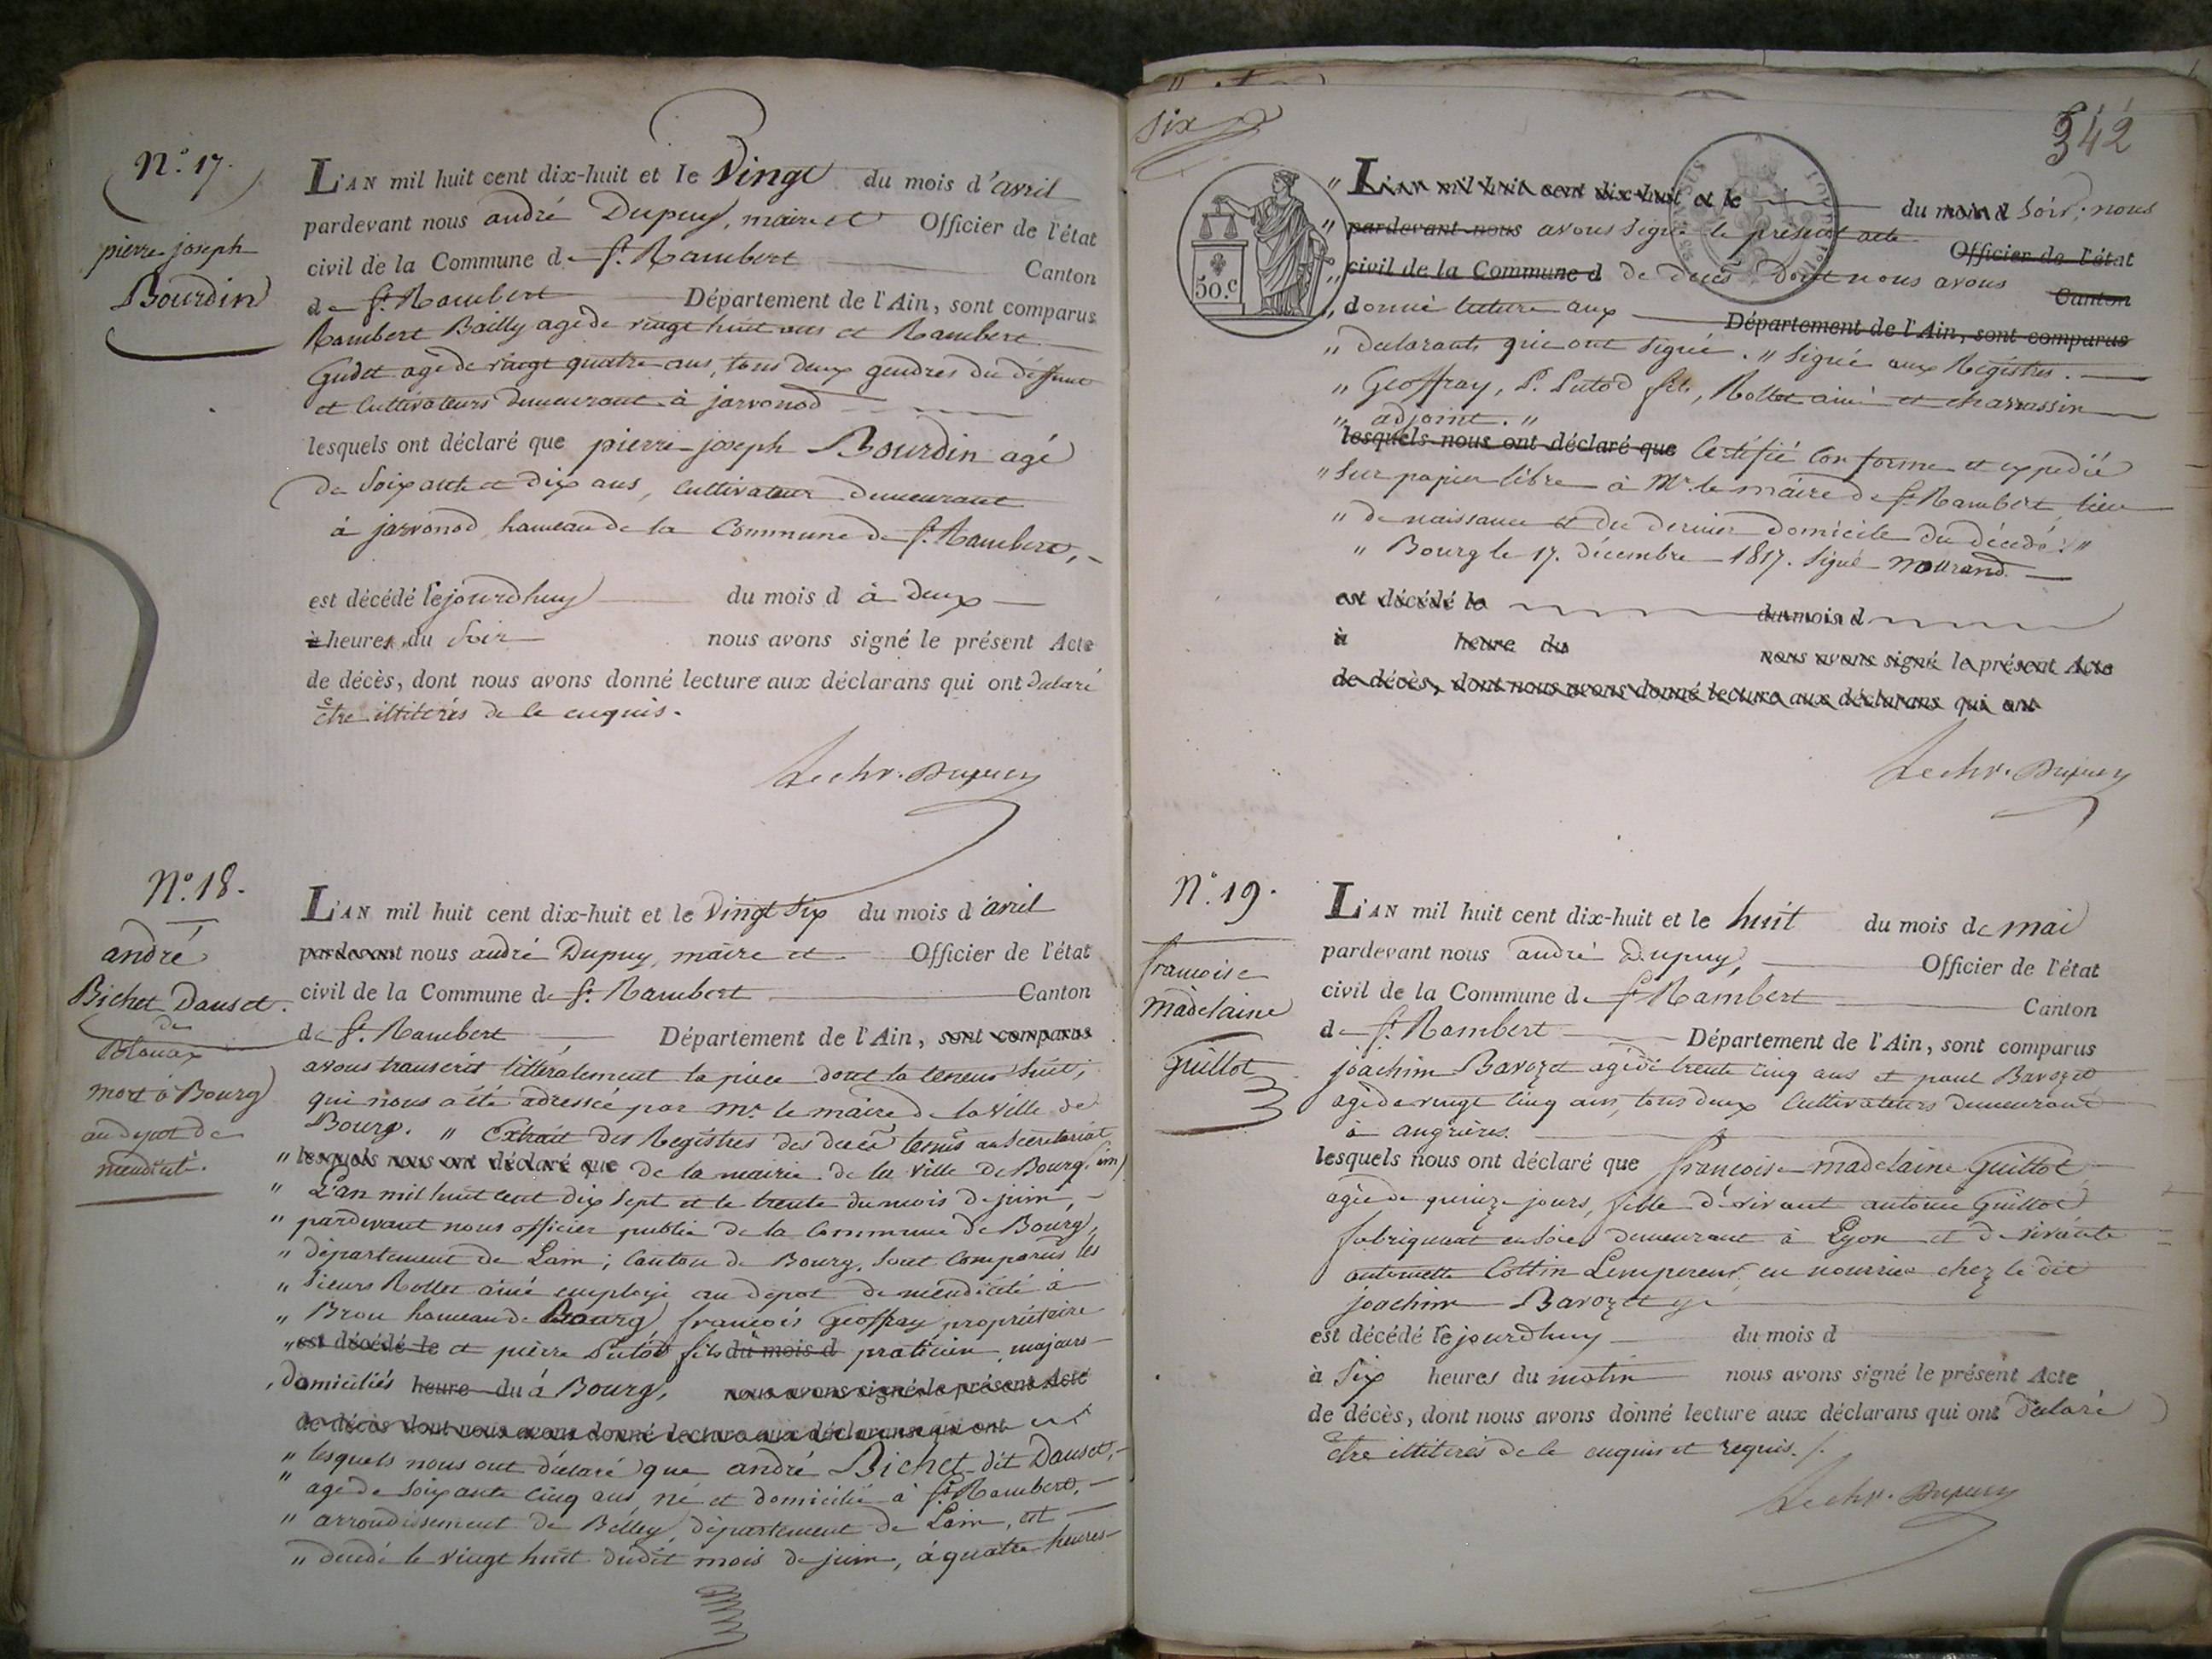 N.° 17.
pierre joseph
Bourdin
L'AN mil huit cent dix-huit et le Vingt du mois d'avril
pardevant nous andré Dupuy, maire et Officier de l'état
civil de la Commune de St. Rambert Canton
de St. Rambert Département de l'Ain, sont comparus
Rambert Bailly agé de vingt huit ans et Rambert
Gudet agé de vingt quatre ans, tous deux gendres du deffunt
et Cultivateurs demeurant à jarvonod
lesquels ont déclaré que pierre-joseph Bourdin agé
de Soixante et dix ans, Cultivateur demeurant
à jarvonod, hameau de la Commune de St. Rambert,
est décédé le jourdhuy du mois d à deux
à heures du Soir nous avons signé le présent Acte
de décès, dont nous avons donné lecture aux déclarans qui ont déclaré
être illitérés de ce enquis.
Le chr. Dupuy
N.° 18.
andré
Bichet Danset
de
Blanaz
mort à Bourg
au depot de
mendicité.
L'AN mil huit cent dix-huit et le Vingt Six du mois d'avril
pardevant nous andré Dupuy, maire et Officier de l'état
civil de la Commune de St. Rambert Canton
de St. Rambert Département de l'Ain, sont comparus
avons transcrit littéralement la piece dont la teneur Suit,
qui nous a été adressée par Mr. le maire de la Ville de
Bourg. " Extrait des Registres des decès tenus au Secretariat
" lesquels nous ont déclaré que de la mairie de la ville de Bourg (ain)
" L'an mil huit cent dix sept et le trente du mois de juin,
" pardevant nous officier public de la Commune de Bourg,
" département de Lain, Canton de Bourg, Sont Comparus les
" Sieurs Rollet ainé employé au depot de mendicité à
" Brou hameau de Bourg, francois Geoffray propriétaire
" est décédé le et pierre Putod fils du mois d praticien, majeurs
" Domiciliés heure du à Bourg, nous avons signé le présent Acte
de décès dont nous avons donné lecture aux déclarans qui ont
" lesquels nous ont déclaré que andré Bichet dit Danset,
" agé de Soixante cinq ans, né et domicilié à St. Rambert,
" arrondissement de Belley, département de Lain, est
" decedé le vingt huit dudit mois de juin, à quatre heures
Six
342
50.c
" L'AN mil huit cent dix-huit et le du mois d Soir; nous
" pardevant nous avons signé le présent acte Officier de l'état
" civil de la Commune d de decès dont nous avons Canton
" donné lecture aux Département de l'Ain, sont comparus
" declarants qui ont signé. " Signé aux Registres.
" Geoffray, P. Putod fils, Rollet ainé et charrassin
" adjoint. "
lesquels nous ont déclaré que Certifié Conforme et expedié
" Sur papier libre à Mr. le maire de St. Rambert, lieu
" de naissance et du dernier domicile du décédé. "
" Bourg le 17. décembre 1817. Signé morand
est décédé le du mois d
à heure du nous avons signé le présent Acte
de décès, dont nous avons donné lecture aux déclarans qui ont
Le chr. Dupuy
N.° 19.
francoise
madelaine
Guillot
L'AN mil huit cent dix-huit et le huit du mois de mai
pardevant nous andré Dupuy, Officier de l'état
civil de la Commune de St Rambert Canton
de St. Rambert Département de l'Ain, sont comparus
joachim Bavozet agé de trente cinq ans et paul Bavozet
agé de vingt cinq ans, tous deux Cultivateurs demeurant
à angrières.
lesquels nous ont déclaré que francoise madelaine Guillot
agée de quinze jours, fille de vivant antoine Guillot
fabriquant en Soie, demeurant à Lyon et de vivante
antoinette Cottin Lempereur, en nourrice chez le dit
joachim Bavozet
est décédé le jourdhuy du mois d
à Six heures du matin nous avons signé le présent Acte
de décès, dont nous avons donné lecture aux déclarans qui ont déclaré
être illitérés de ce enquis et requis.
Le chr. Dupuy